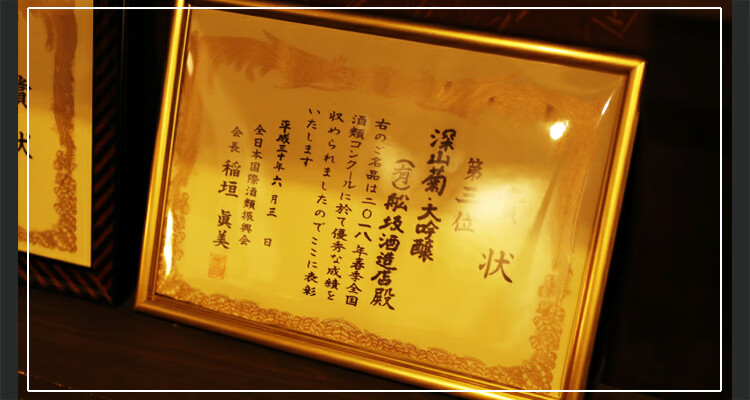 賞状
第三位
深山菊・大吟醸
(有)舩坂酒造店殿
右のご名品は二〇一八年春季全国
酒類コンクールに於て優秀な成績を
収められましたのでここに表彰
いたします
平成三十年六月三日
全日本国際酒類振興会
会長 稲垣眞美
賞状